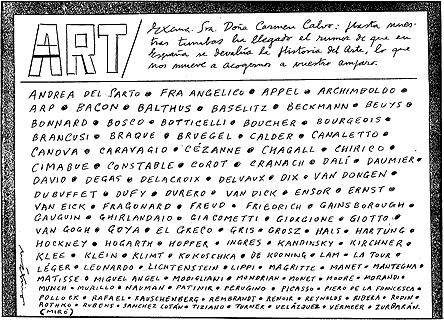 ART/
Excma. Sra. Doña Carmen Calvo: ¡hasta nues-
tras tumbas ha llegado el rumor de que en
España se devalúa la Historia del Arte, lo que
nos mueve a acogernos a vuestro amparo.
ANDREA DEL SARTO • FRA ANGELICO • APPEL • ARCHIMPOLDO •
ARP • BACON • BALTHUS • BASELITZ • BECKMANN • BEUYS •
BONNARD • BOSCO • BOTTICELLI • BOUCHER • BOURGEOIS •
BRANCUSI • BRAQUE • BRUEGEL • CALDER • CANALETTO •
CANOVA • CARAVAGIO • CÉZANNE • CHAGALL • CHIRICO •
CIMABUE • CONSTABLE • COROT • CRANACH • DALÍ • DAUMIER •
DAVID • DEGAS • DELACROIX • DELVAUX • DIX • VAN DONGEN •
DUBUFFET • DUFY • DURERO • VAN DICK • ENSOR • ERNST •
VAN EICK • FRAGONARD • FREUD • FRIEDRICH • GAINSBOROUGH •
GAUGUIN • GHIRLANDAIO • GIACOMETTI • GIORGIONE • GIOTTO •
VAN GOGH • GOYA • EL GRECO • GRIS • GROSZ • HALS • HARTUNG •
HOCKNEY • HOGARTH • HOPPER • INGRES • KANDINSKY • KIRCHNER •
KLEE • KLEIN • KLIMT • KOKOSCHKA • DE KOONING • LAM • LA TOUR •
LÉGER • LEONARDO • LICHTENSTEIN • LIPPI • MAGRITTE • MANET • MANTEGNA •
MATISSE • MIGUEL ANGEL • MODIGLIANI • MONDRIAN • MONET • MOORE • MORANDI •
MUNCH • MURILLO • NAUMAN • PATINIR • PERUGINO • PICASSO • PIERO DE LA FRANCESCA •
POLLOCK • RAFAEL • RAUSCHENBERG • REMBRANDT • RENOIR • REYNOLDS • RIBERA • RODIN •
ROTHKO • RUBENS • SANCHEZ COTÁN • TIZIANO • TURNER • VELÁZQUEZ • VERMEER • ZURBARÁN.
(MIRÉ)